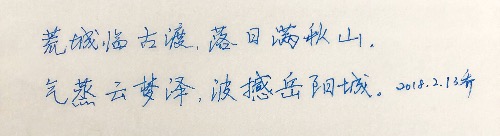 荒城临古渡，落日满秋山，
气蒸云梦泽，波撼岳阳城。2018.2.13